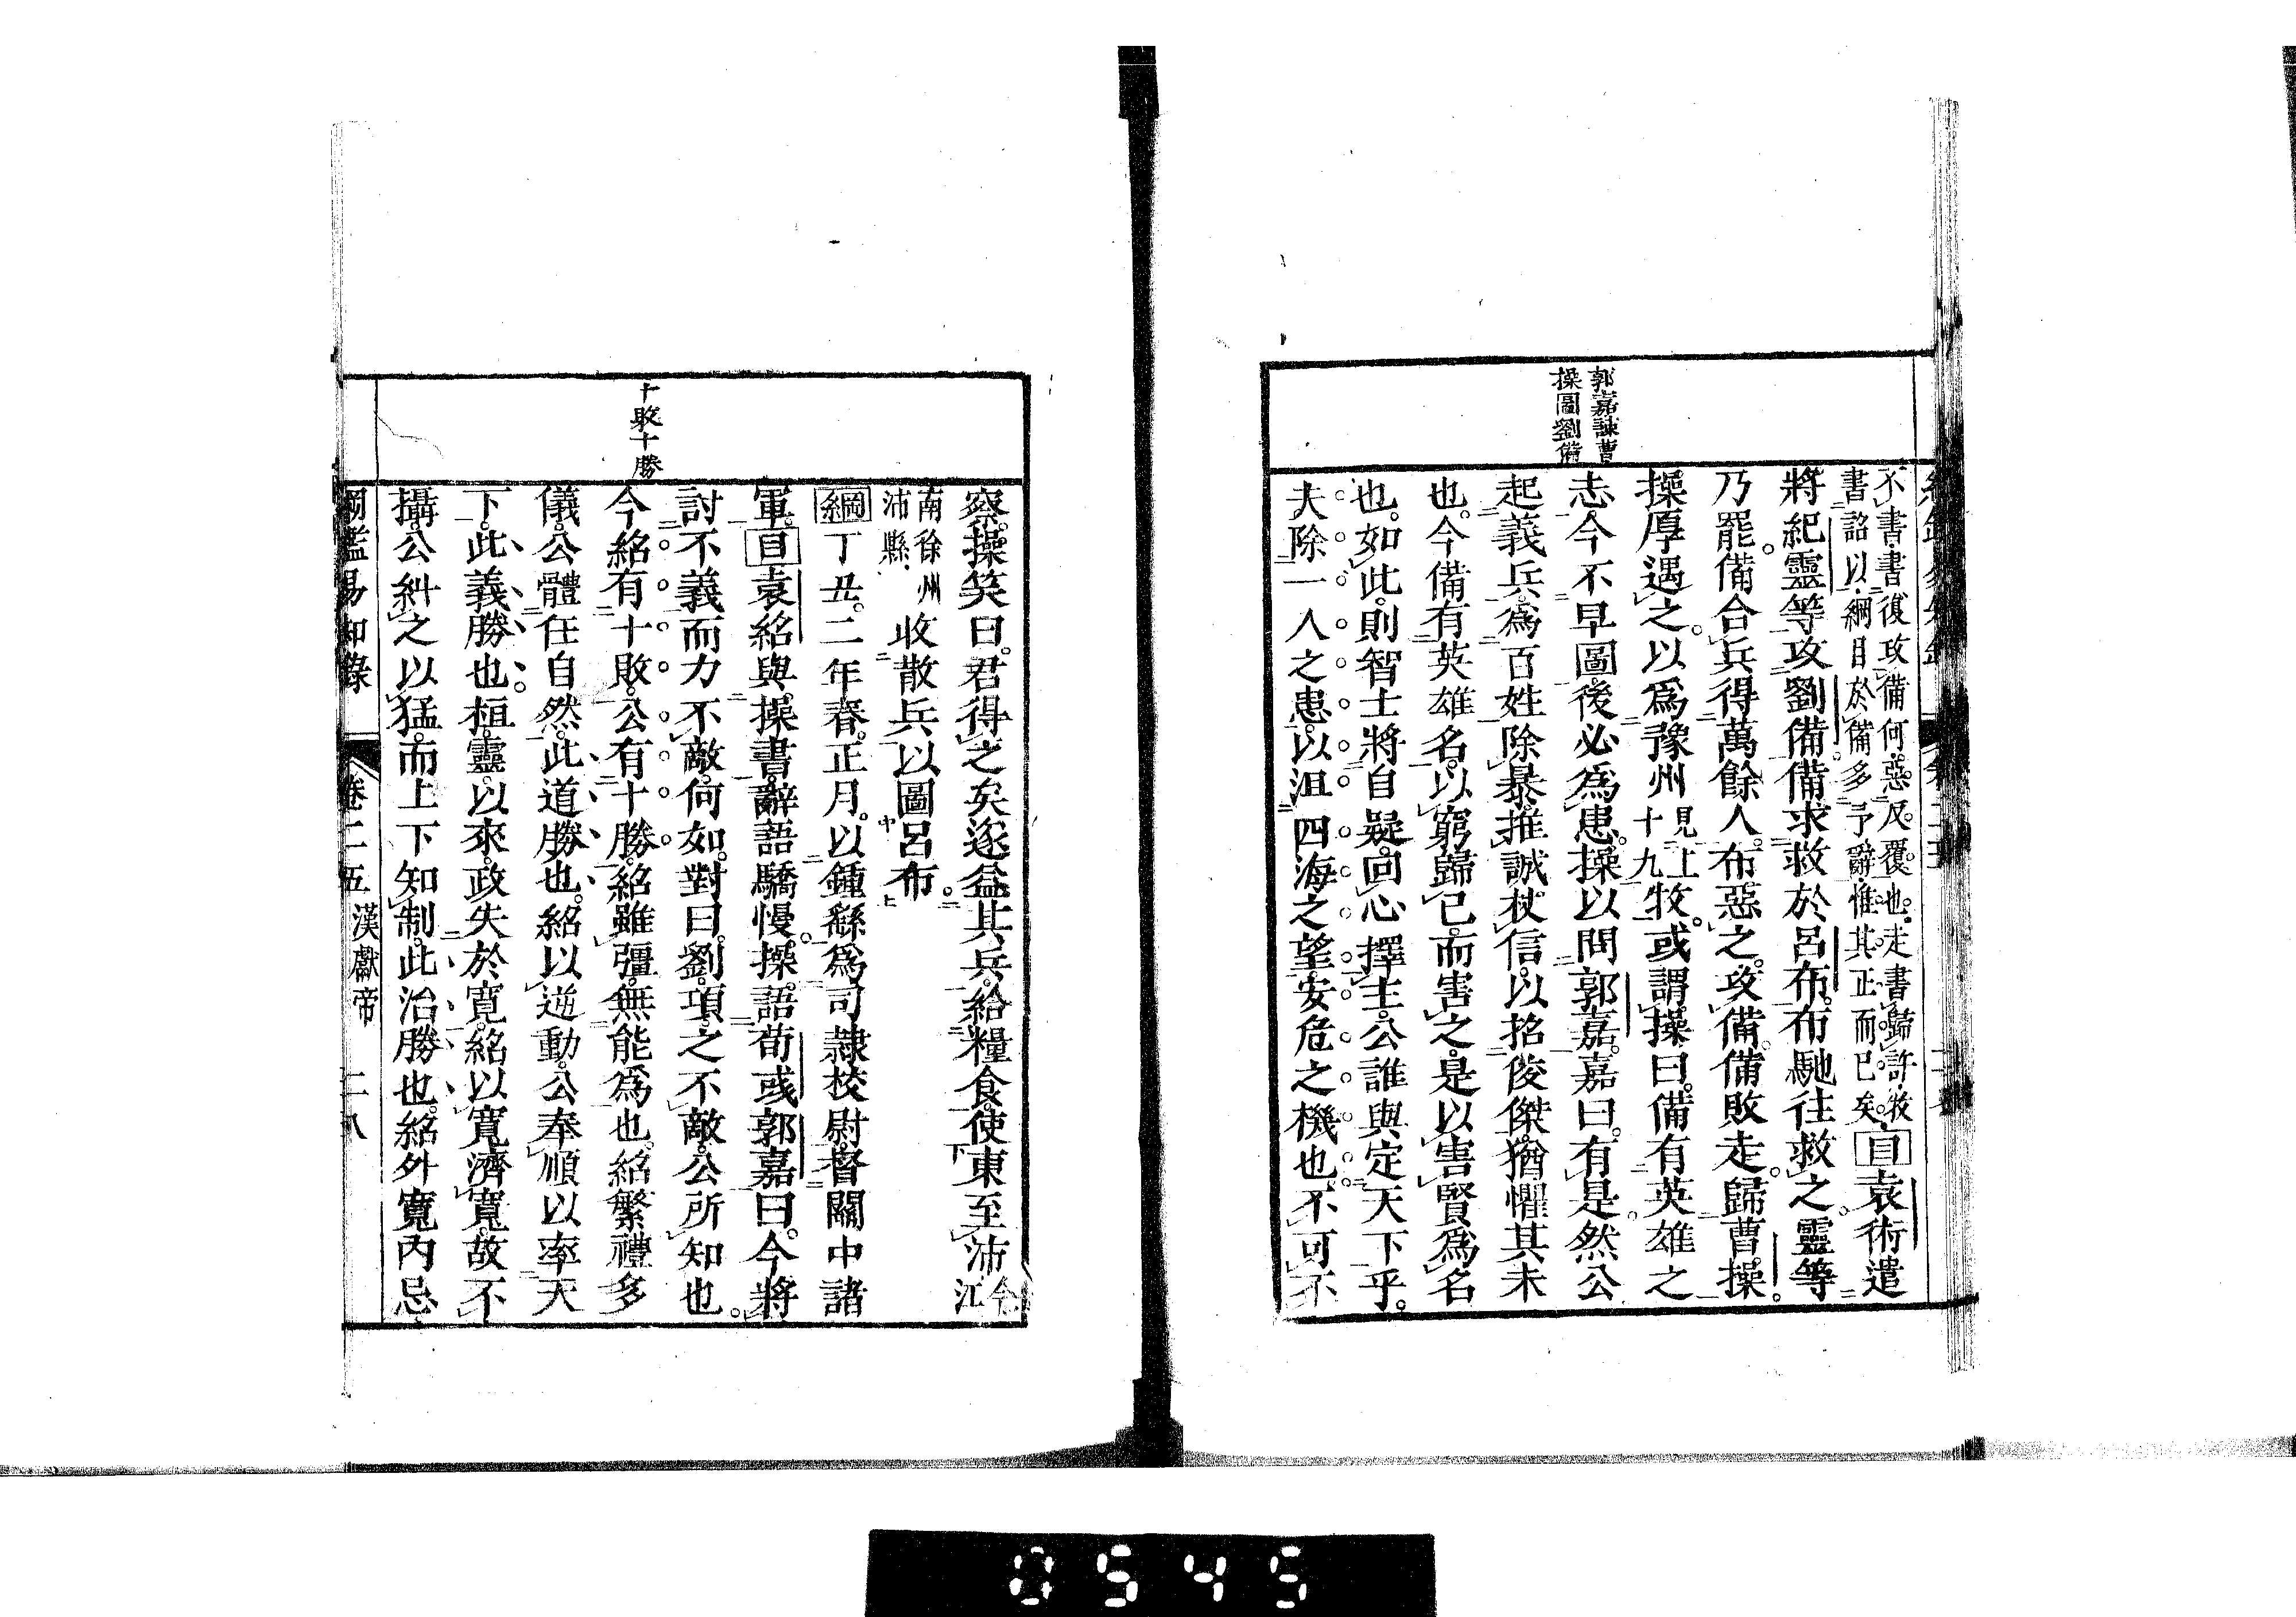 郭嘉諫曹
操圖劉備
不書書復攻備何惡反覆也走書歸許牧
書詔以綱目於備多予辭惟其正而已矣
目袁術遣
將紀靈等攻劉備備求救於呂布布馳往救之靈等
乃罷備合兵得萬餘人布惡之攻備備敗走歸曹操
操厚遇之以爲豫州見上十九牧或謂操曰備有英雄之
志今不早圖後必爲患操以問郭嘉嘉曰有是然公
起義兵爲百姓除暴推誠杖信以招俊傑猶懼其未
也今備有英雄名以窮歸己而害之是以害賢爲名
也如此則智士將自疑回心擇主公誰與定天下乎
夫除一人之患以沮四海之望安危之機也不可不
十敗十勝
察操笑曰君得之矣逐益其兵給糧食使東至沛今江
南徐州沛縣收散兵以圖呂布
綱丁丑二年春正月以鍾繇爲司隸校尉督關中諸
軍目袁紹與操書辭語驕慢操語荀彧郭嘉曰今將
討不義而力不敵何如對曰劉項之不敵公所知也
今紹有十敗公有十勝紹雖彊無能爲也紹繁禮多
儀公體任自然此道勝也紹以逆動公奉順以率天
下此義勝也桓靈以來政失於寬紹以寬濟寬故不
攝公糾之以猛而上下知制此治勝也紹外寬內忌
綱鑑易知錄 卷二五 漢獻帝 二八
0545